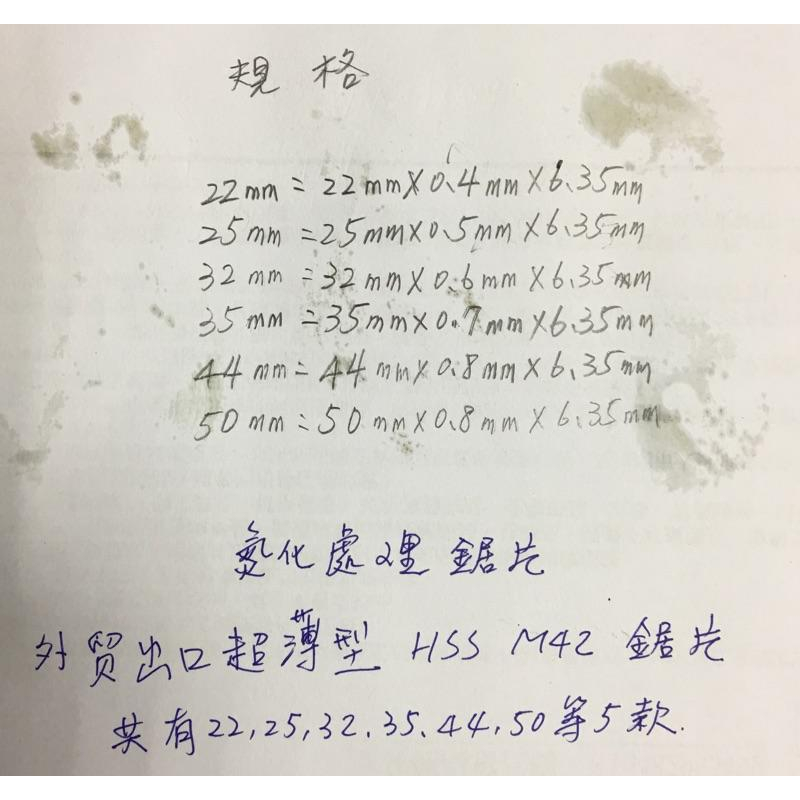 規格
22mm = 22mm X 0.4mm X 6.35mm
25mm = 25mm X 0.5mm X 6.35mm
32mm = 32mm X 0.6mm X 6.35mm
35mm = 35mm X 0.7mm X 6.35mm
44mm = 44mm X 0.8mm X 6.35mm
50mm = 50mm X 0.8mm X 6.35mm
氮化處理 鋸片
外貿出口超薄型 HSS M42 鋸片
共有22,25,32、35、44,50等5款.